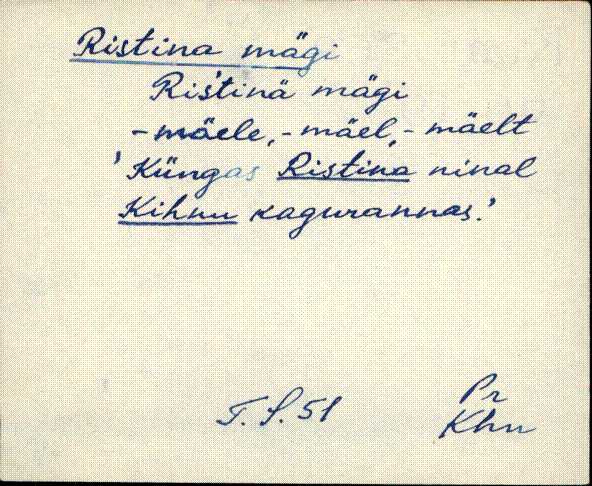 Ristina mägi
Ris'tinä mägi
-mäele, -mäel, -mäelt
'Küngas Ristina ninal
Kihnu kagurannas.'
T. S. 51
Pr
Khn